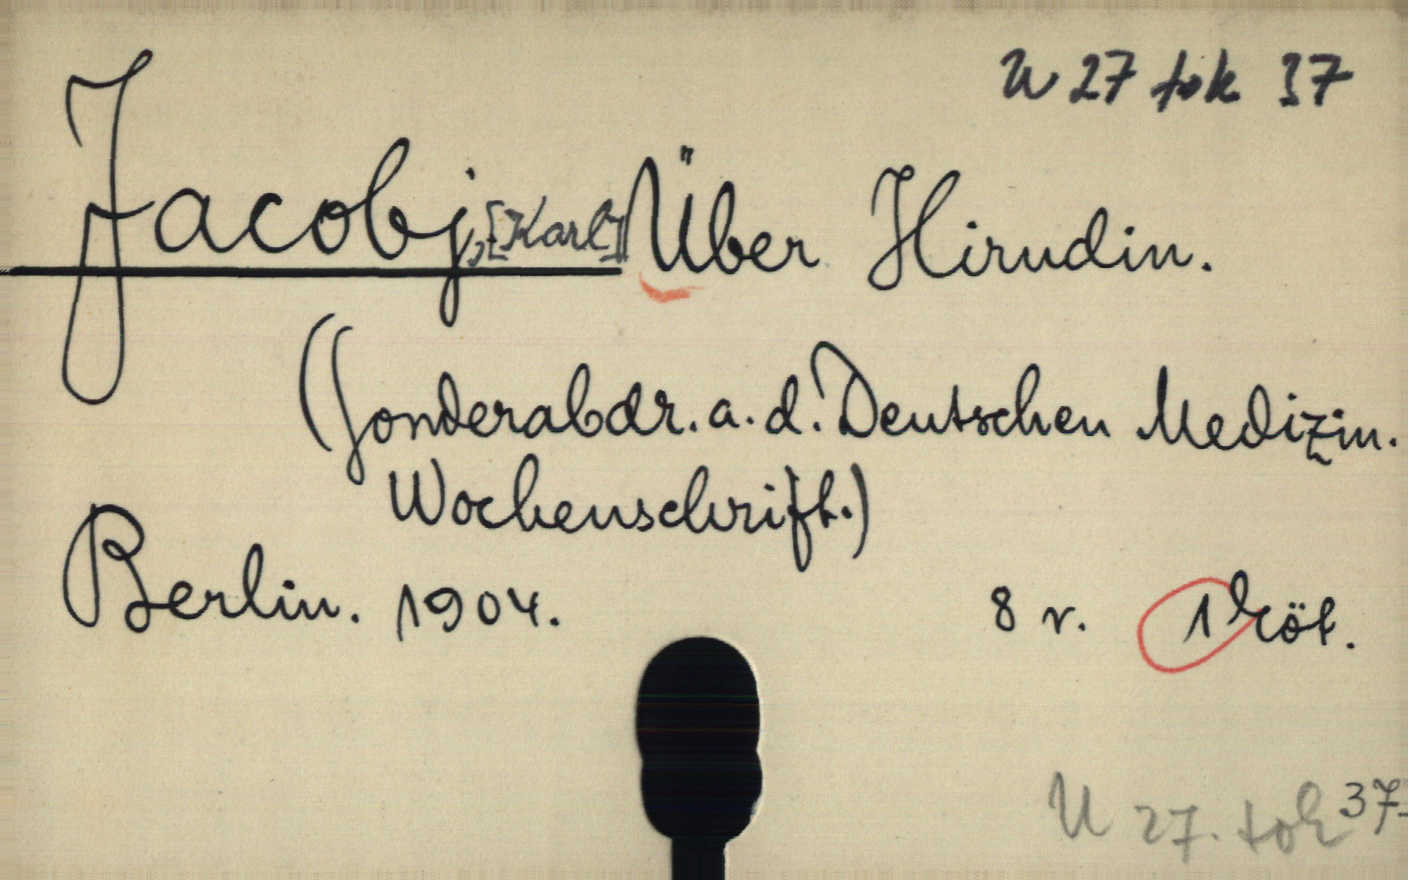 U 27 tok 37
Jacobj,[Karl] Über Hirudin.
(Sonderabdr. a. d. Deutschen Medizin.
Wochenschrift.)
Berlin. 1904. 8 r. 1 köt.
U 27. tok 37